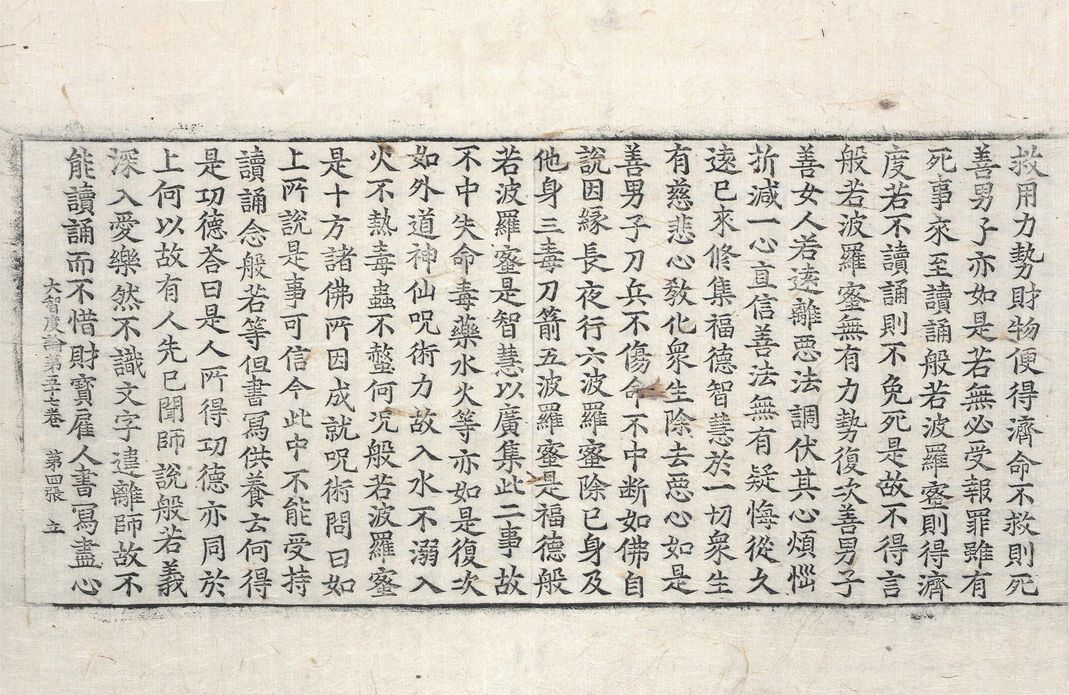 救用力勢財物便得濟命不救則死
善男子亦如是若無必受報罪雖有
死事來至讀誦般若波羅蜜則得濟
度若不讀誦則不免死是故不得言
般若波羅蜜無有力勢復次善男子
善女人若遠離惡法調伏其心煩惱
折減一心直信善法無有疑悔從久
遠已來修集福德智慧於一切衆生
有慈悲心敎化衆生除去惡心如是
善男子刀兵不傷命不中断如佛自
說因緣長夜行六波羅蜜除已身及
他身三毒刀箭五波羅蜜是福德般
若波羅蜜是智慧以廣集此二事故
不中失命毒藥水火等亦如是復次
如外道神仙呪術力故入水不溺入
火不熱毒蟲不螫何况般若波羅蜜
是十方諸佛所因成就呪術問曰如
上所說是事可信今此中不能受持
讀誦念般若等但書寫供養云何得
是功德荅曰是人所得功德亦同於
上何以故有人先已聞師說般若義
深入愛樂然不識文字違離師故不
能讀誦而不惜財寶雇人書寫盡心
大智度論第五十七卷　第四張　立